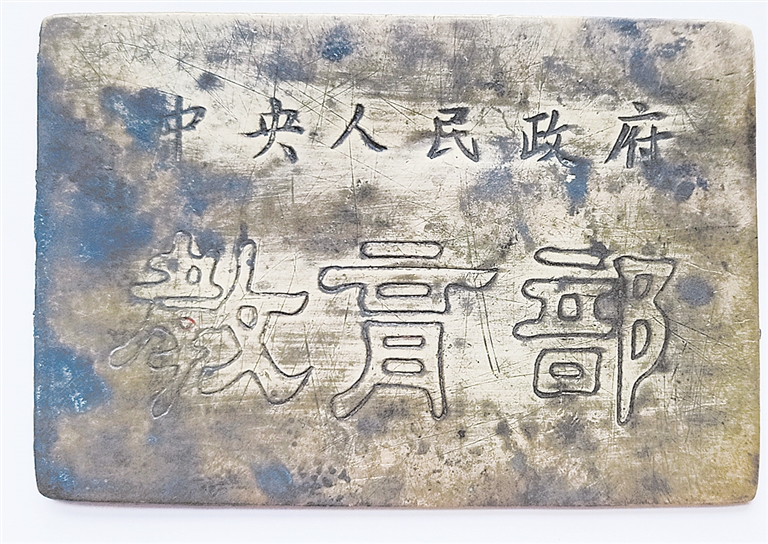 中央人民政府
教育部